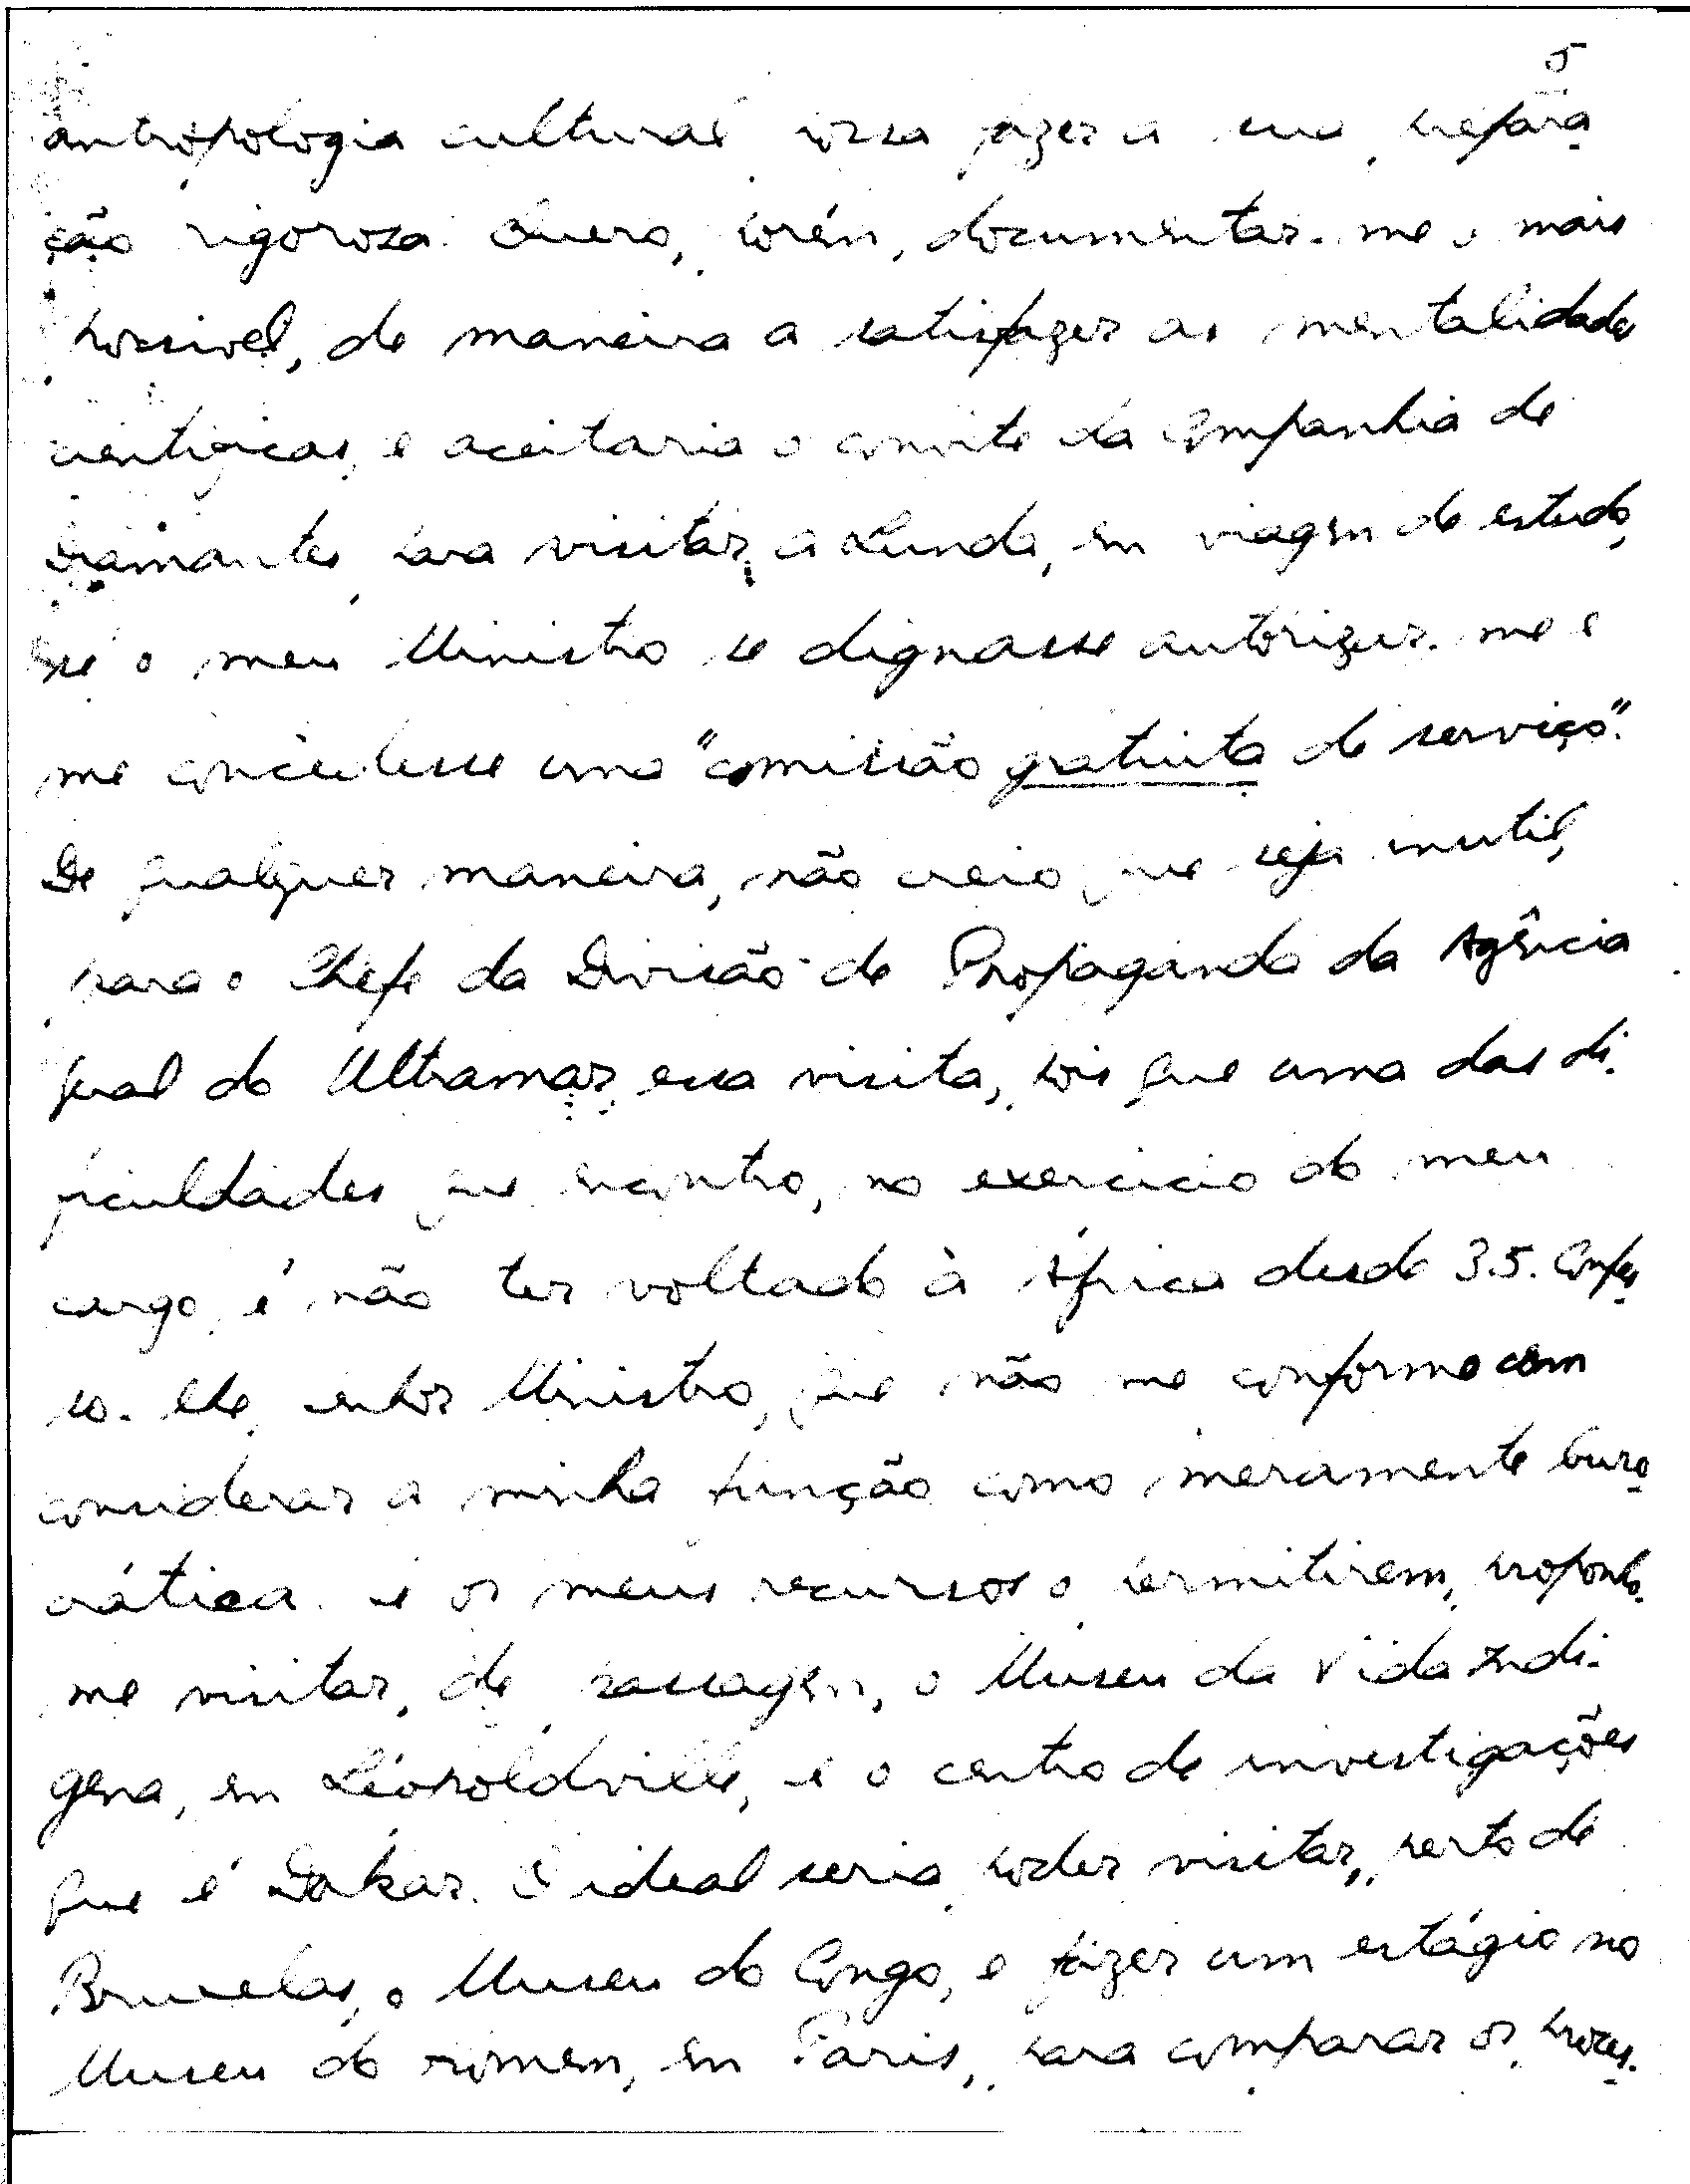 5
antropologia cultural possa fazer a sua prepara
ção rigorosa. Quero, porém, documentar-me o mais
possivel, de maneira a satisfazer as mentalidades
cientificas, e aceitaria o convite da Companhia de
Diamantes para visitar a Lunda, em viagem de estudo,
se o meu Ministro se dignasse autorizar-me e
me concedesse uma "comissão gratuita de serviço".
De qualquer maneira, não creio que seja inutil,
para o Chefe da Divisão de Propaganda da Agência
Geral do Ultramar, essa visita, pois que uma das di-
ficuldades que encontro, no exercicio do meu
cargo, é não ter voltado à África desde 35. Confes
so-lhe, senhor Ministro, que não me conformo com
considerar a minha função como meramente buro
crática. Se os meus recursos o permitirem, proponho-
me visitar, de passagem, o Museu da Vida Indi-
gena, em Léopoldville, e o centro de investigações
que é Dakar. O ideal seria poder visitar, perto de
Bruxelas, o Museu do Congo, e fazer um estágio no
Museu do Homem, em Paris, para comparar os proces-